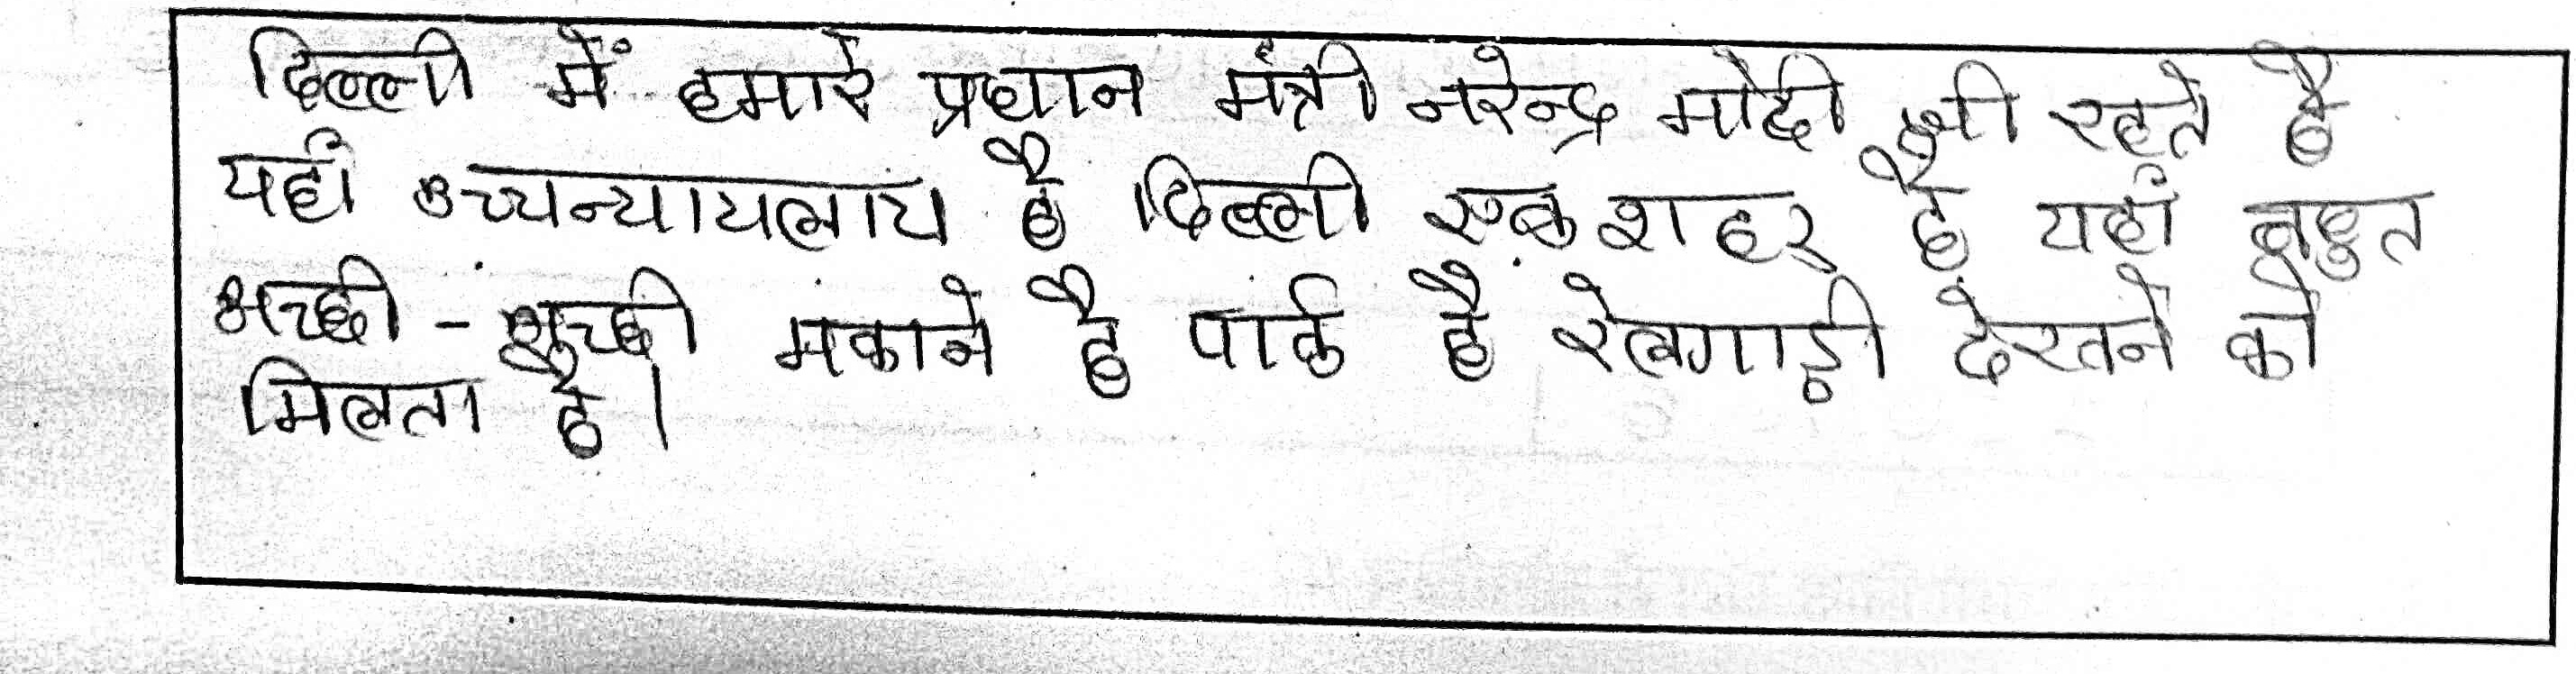 दिल्ली में हमारे प्रधान मंत्री नरेन्द्र मोदी भी रहते है
यहाँ उच्चन्यायलाय है दिल्ली एक शहर है यहाँ बहुत
अच्छी - अच्छी मकाने है पार्क है रेलगाड़ी देखने को
मिलता है।